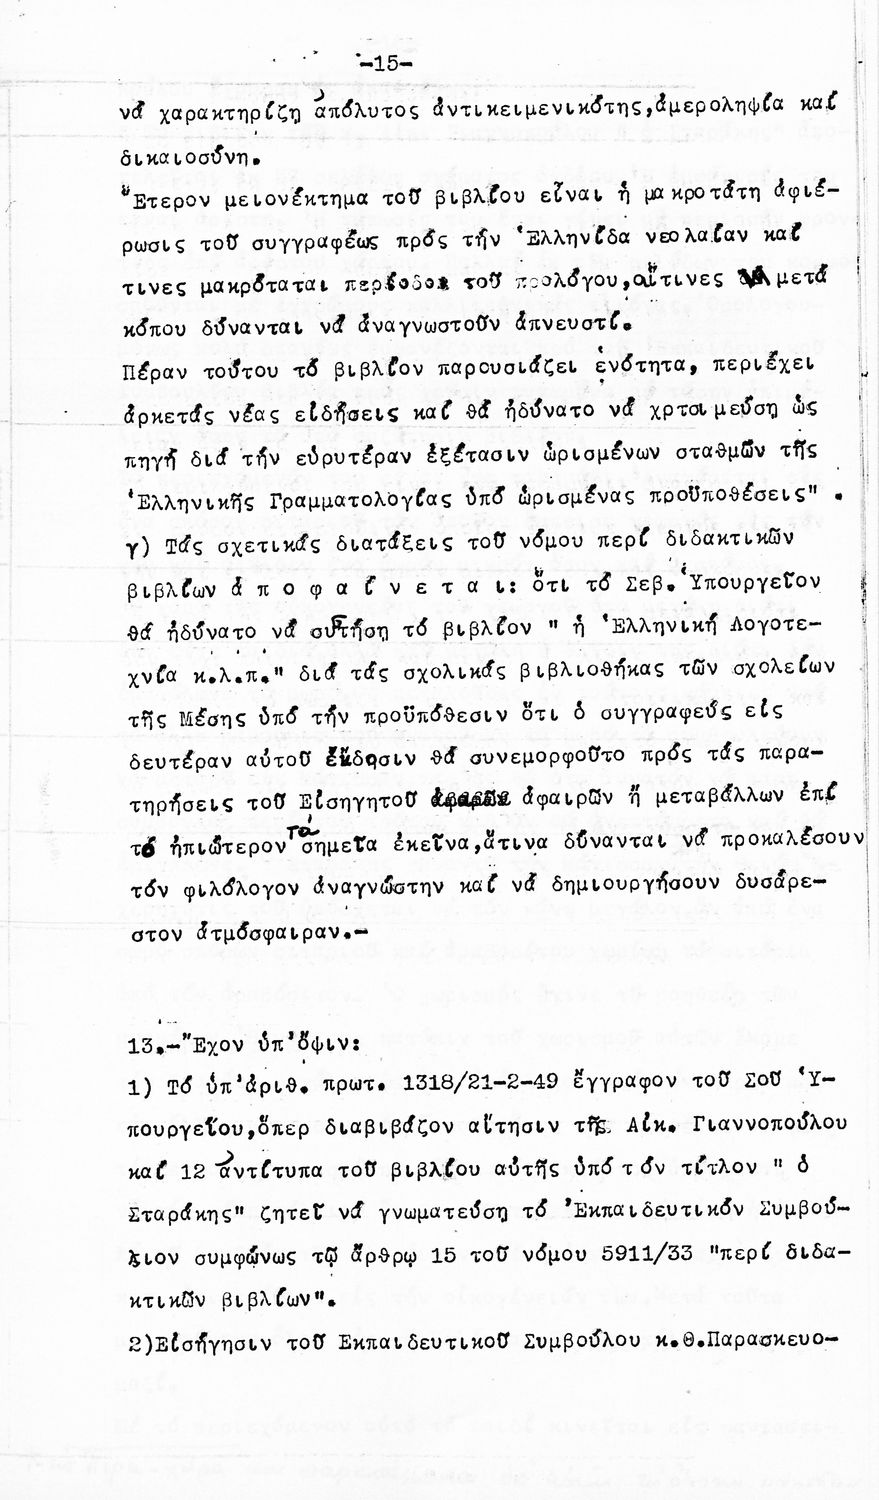 -15-
νά χαρακτηρίζῃ ἀπόλυτος ἀντικειμενικότης,ἀμεροληψία καί
δικαιοσύνη.
Ἕτερον μειονέκτημα τοῦ βιβλίου εἶναι ἡ μακροτάτη ἀφιέ-
ρωσις τοῦ συγγραφέως πρός τήν Ἑλληνίδα νεολαίαν καί
τινες μακρόταται περίοδοι τοῦ προλόγου,αἵτινες μετά
κόπου δύνανται νά ἀναγνωστοῦν ἀπνευστί.
Πέραν τούτου τό βιβλίον παρουσιάζει ἑνότητα, περιέχει
ἀρκετάς νέας εἰδήσεις καί θά ἠδύνατο νά χρτσιμεύσῃ ὡς
πηγή διά τήν εὐρυτέραν ἐξέτασιν ὡρισμένων σταθμῶν τῆς
Ἑλληνικῆς Γραμματολογίας ὑπό ὡρισμένας προϋποθέσεις" .
γ) Τάς σχετικάς διατάξεις τοῦ νόμου περί διδακτικῶν
βιβλίων ἀ π ο φ α ί ν ε τ α ι: ὅτι τό Σεβ. Ὑπουργεῖον
θά ἠδύνατο νά συστήσῃ τό βιβλίον " ἡ Ἑλληνική Λογοτε-
χνία κ.λ.π." διά τάς σχολικάς βιβλιοθήκας τῶν σχολείων
τῆς Μέσης ὑπό τήν προϋπόθεσιν ὅτι ὁ συγγραφεύς εἰς
δευτέραν αὐτοῦ ἔκδοσιν θά συνεμορφοῦτο πρός τάς παρα-
τηρήσεις τοῦ Εἰσηγητοῦ ἀφαιρῶν ἤ μεταβάλλων ἐπί
τό ἠπιώτερον τά σημεῖα ἐκεῖνα,ἅτινα δύνανται νά προκαλέσουν
τόν φιλόλογον ἀναγνώστην καί νά δημιουργήσουν δυσάρε-
στον ἀτμόσφαιραν.-
13.-Ἔχον ὑπ'ὄψιν:
1) Τό ὑπ'ἀριθ. πρωτ. 1318/21-2-49 ἔγγραφον τοῦ Σοῦ Ὑ-
πουργείου,ὅπερ διαβιβάζον αἴτησιν τῆς Αἰκ. Γιαννοπούλου
καί 12 ἀντίτυπα τοῦ βιβλίου αὐτῆς ὑπό τόν τίτλον " ὁ
Σταράκης" ζητεῖ νά γνωματεύσῃ τό Ἐκπαιδευτικόν Συμβού-
λιον συμφώνως τῷ ἄρθρῳ 15 τοῦ νόμου 5911/33 "περί διδα-
κτικῶν βιβλίων".
2)Εἰσήγησιν τοῦ Ἐκπαιδευτικοῦ Συμβούλου κ.Θ.Παρασκευο-